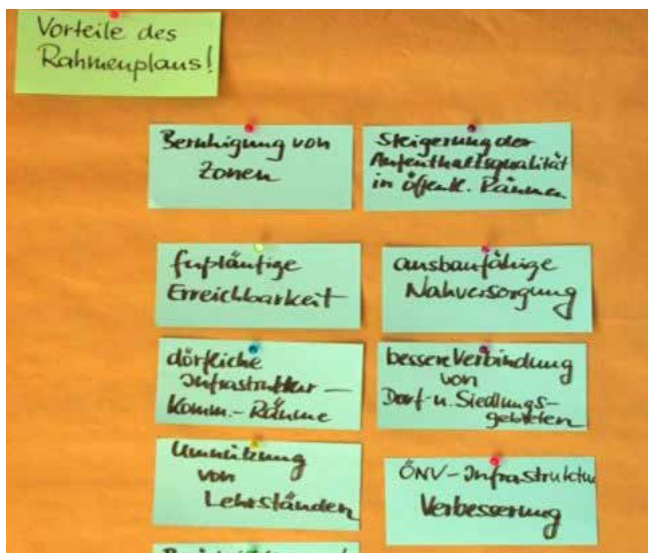 Vorteile des
Rahmenplans!
Beruhigung von
Zonen
Steigerung der
Aufenthaltsqualität
in öffentl. Räumen
fußläufige
Erreichbarkeit
ausbaufähige
Nahversorgung
dörfliche
Infrastruktur –
Komm.-Räume
bessere Verbindung
von
Dorf- u. Siedlungs-
gebieten
Umnützung
von
Lehrständen
ÖNV-Infrastruktur
Verbesserung